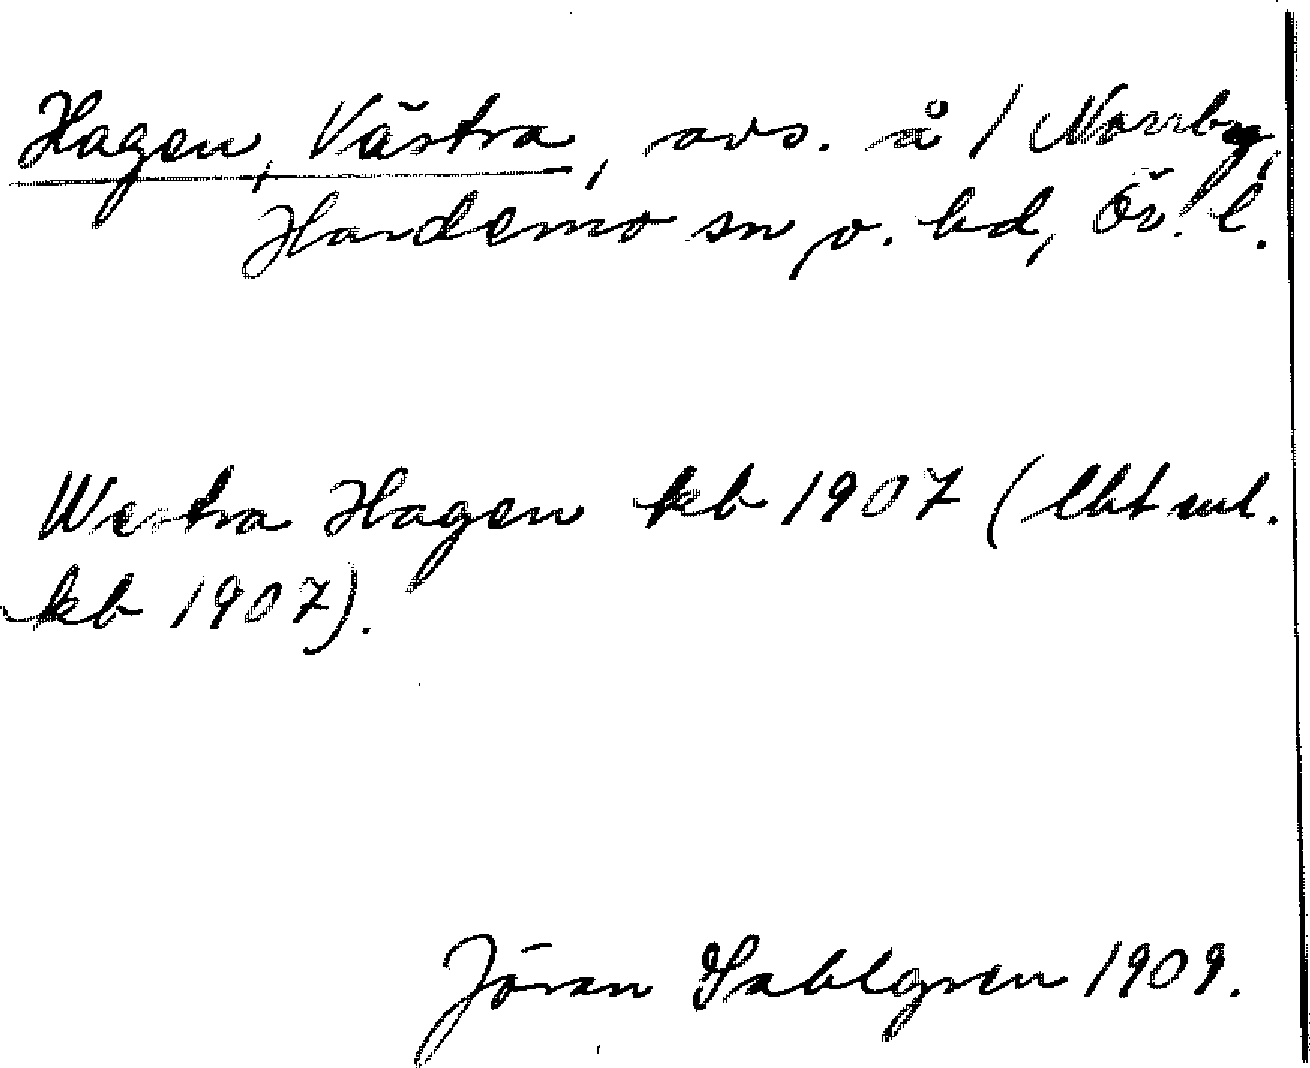 Hagen, Västra, avs. å / Norrby,
Hardemo sn o. hd, Ör. l.
Westra Hagen kb 1907 (lht enl.
kb 1907).
Jöran Sahlgren 1909.